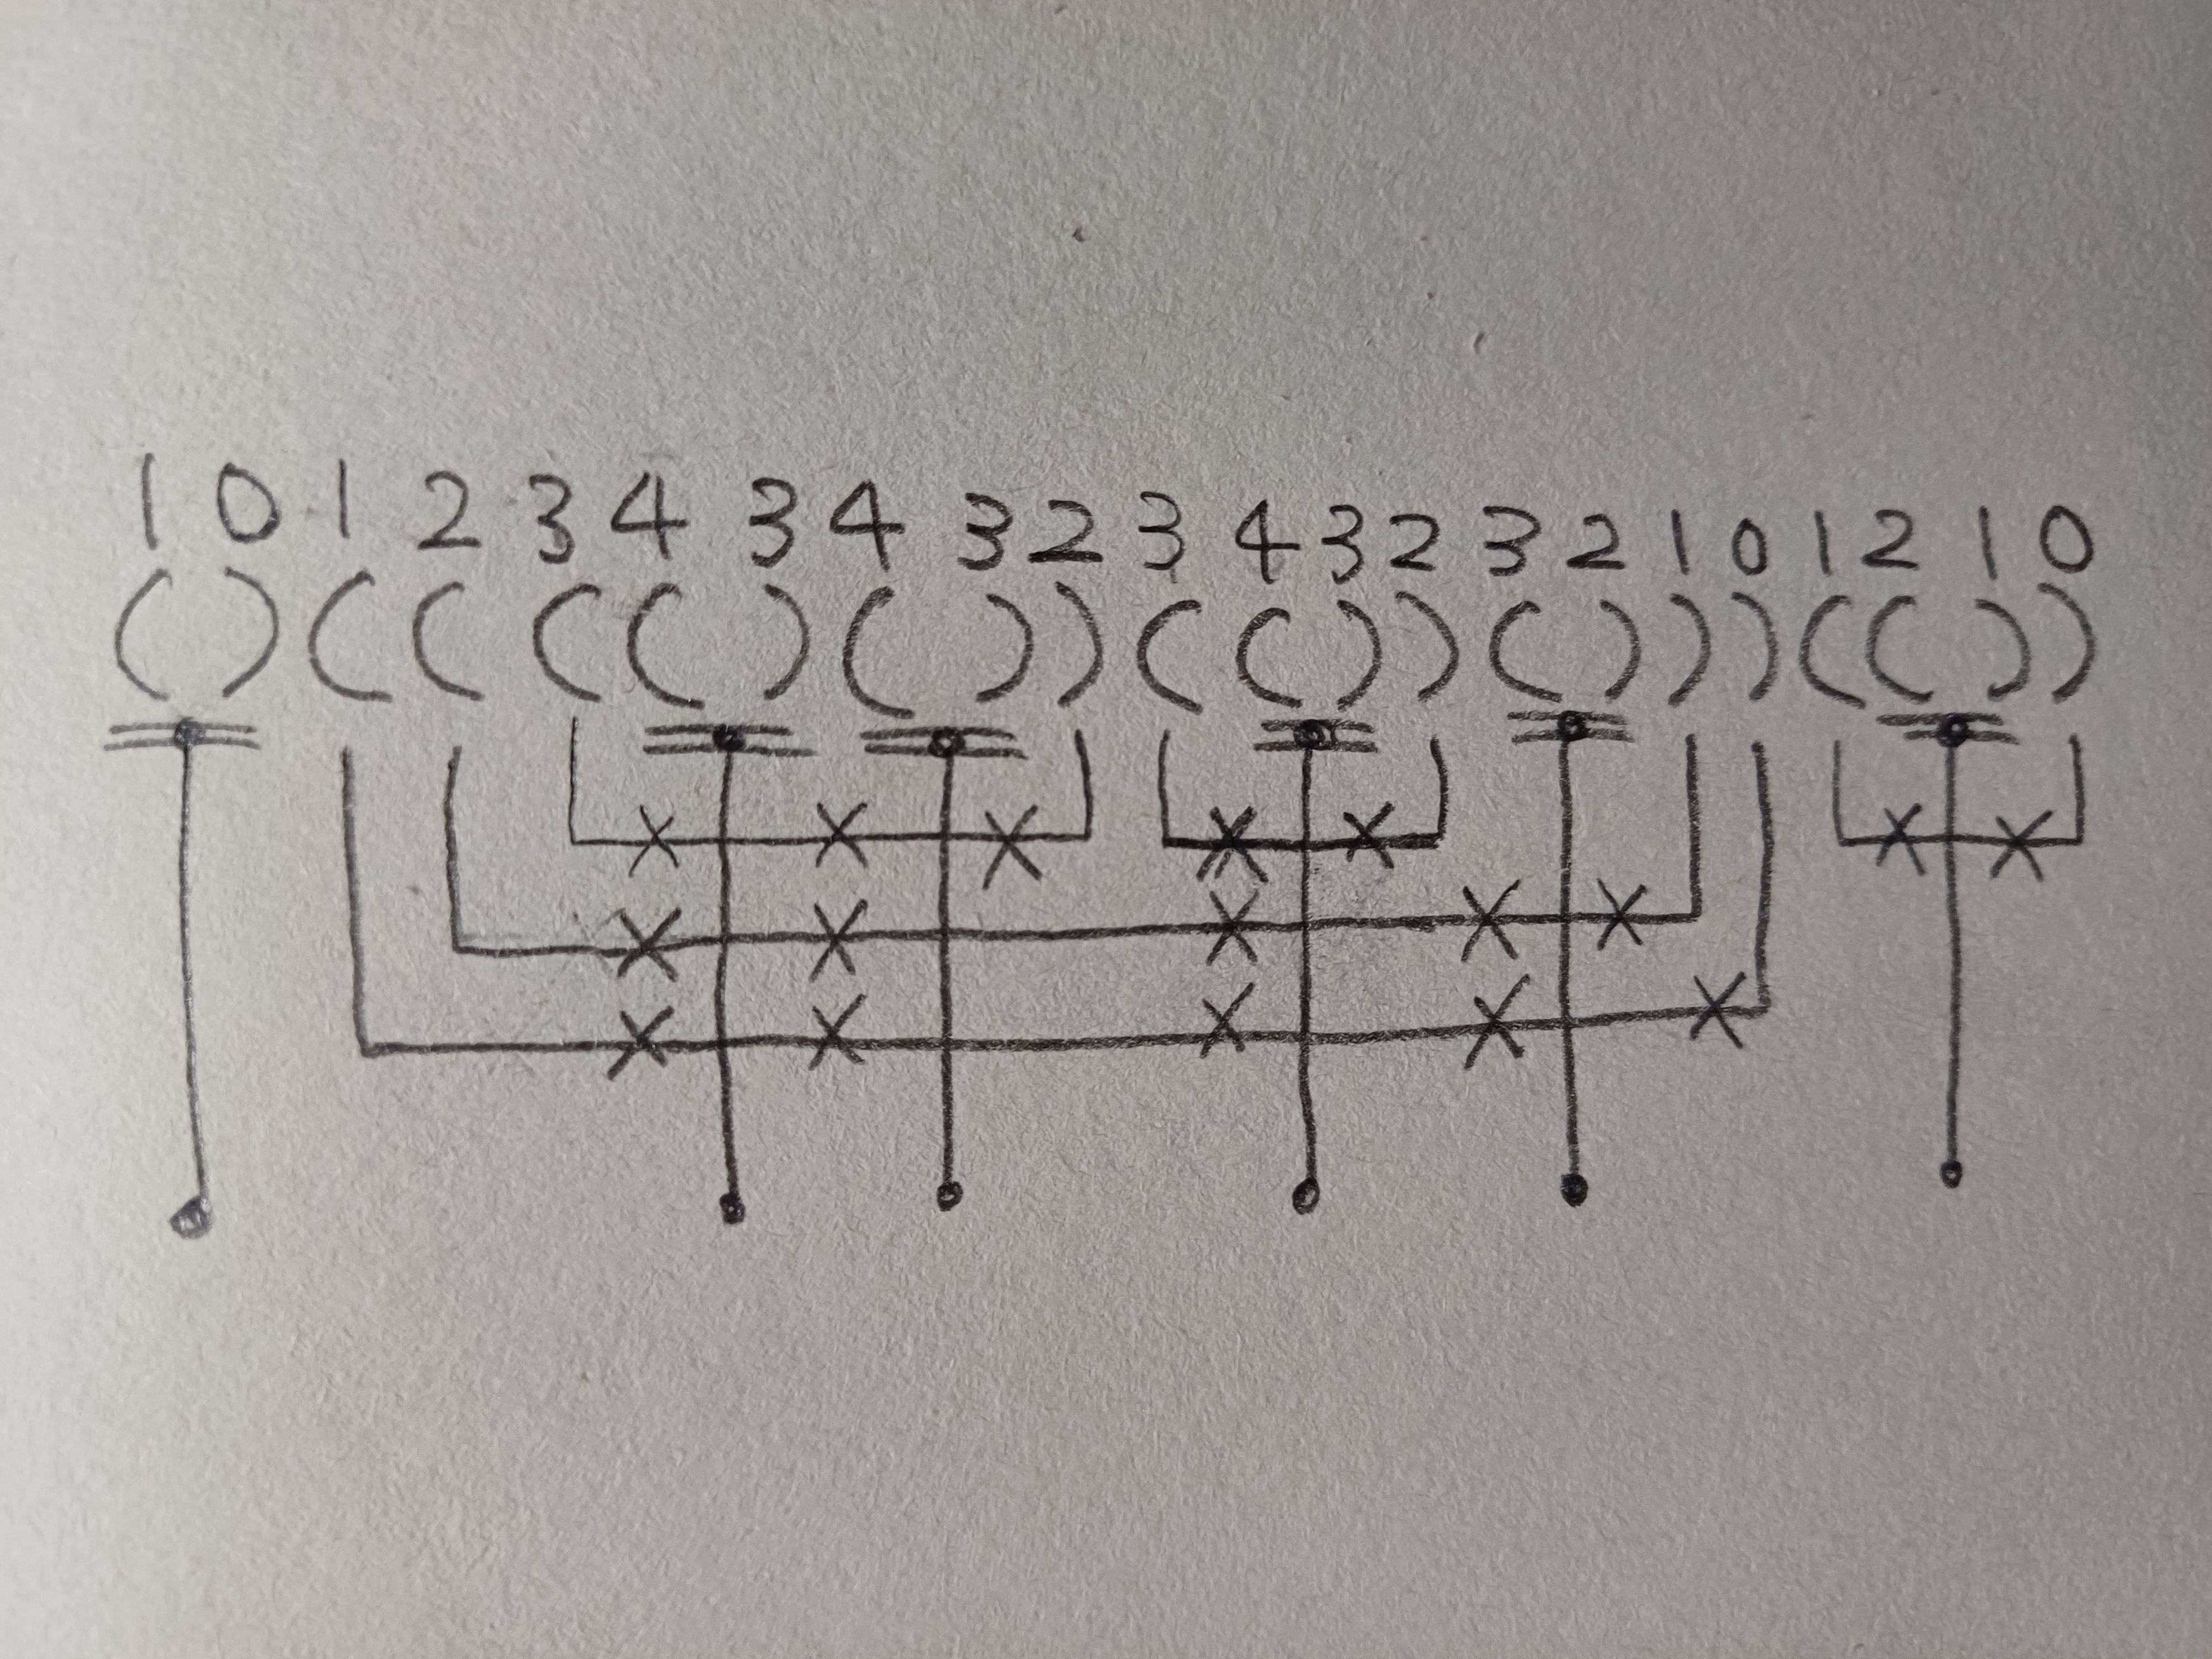 1 0 1 2 3 4 3 4 3 2 3 4 3 2 3 2 1 0 1 2 1 0
( ) ( ( ( ( ) ( ) ) ( ( ) ) ( ) ) ) ( ( ) )